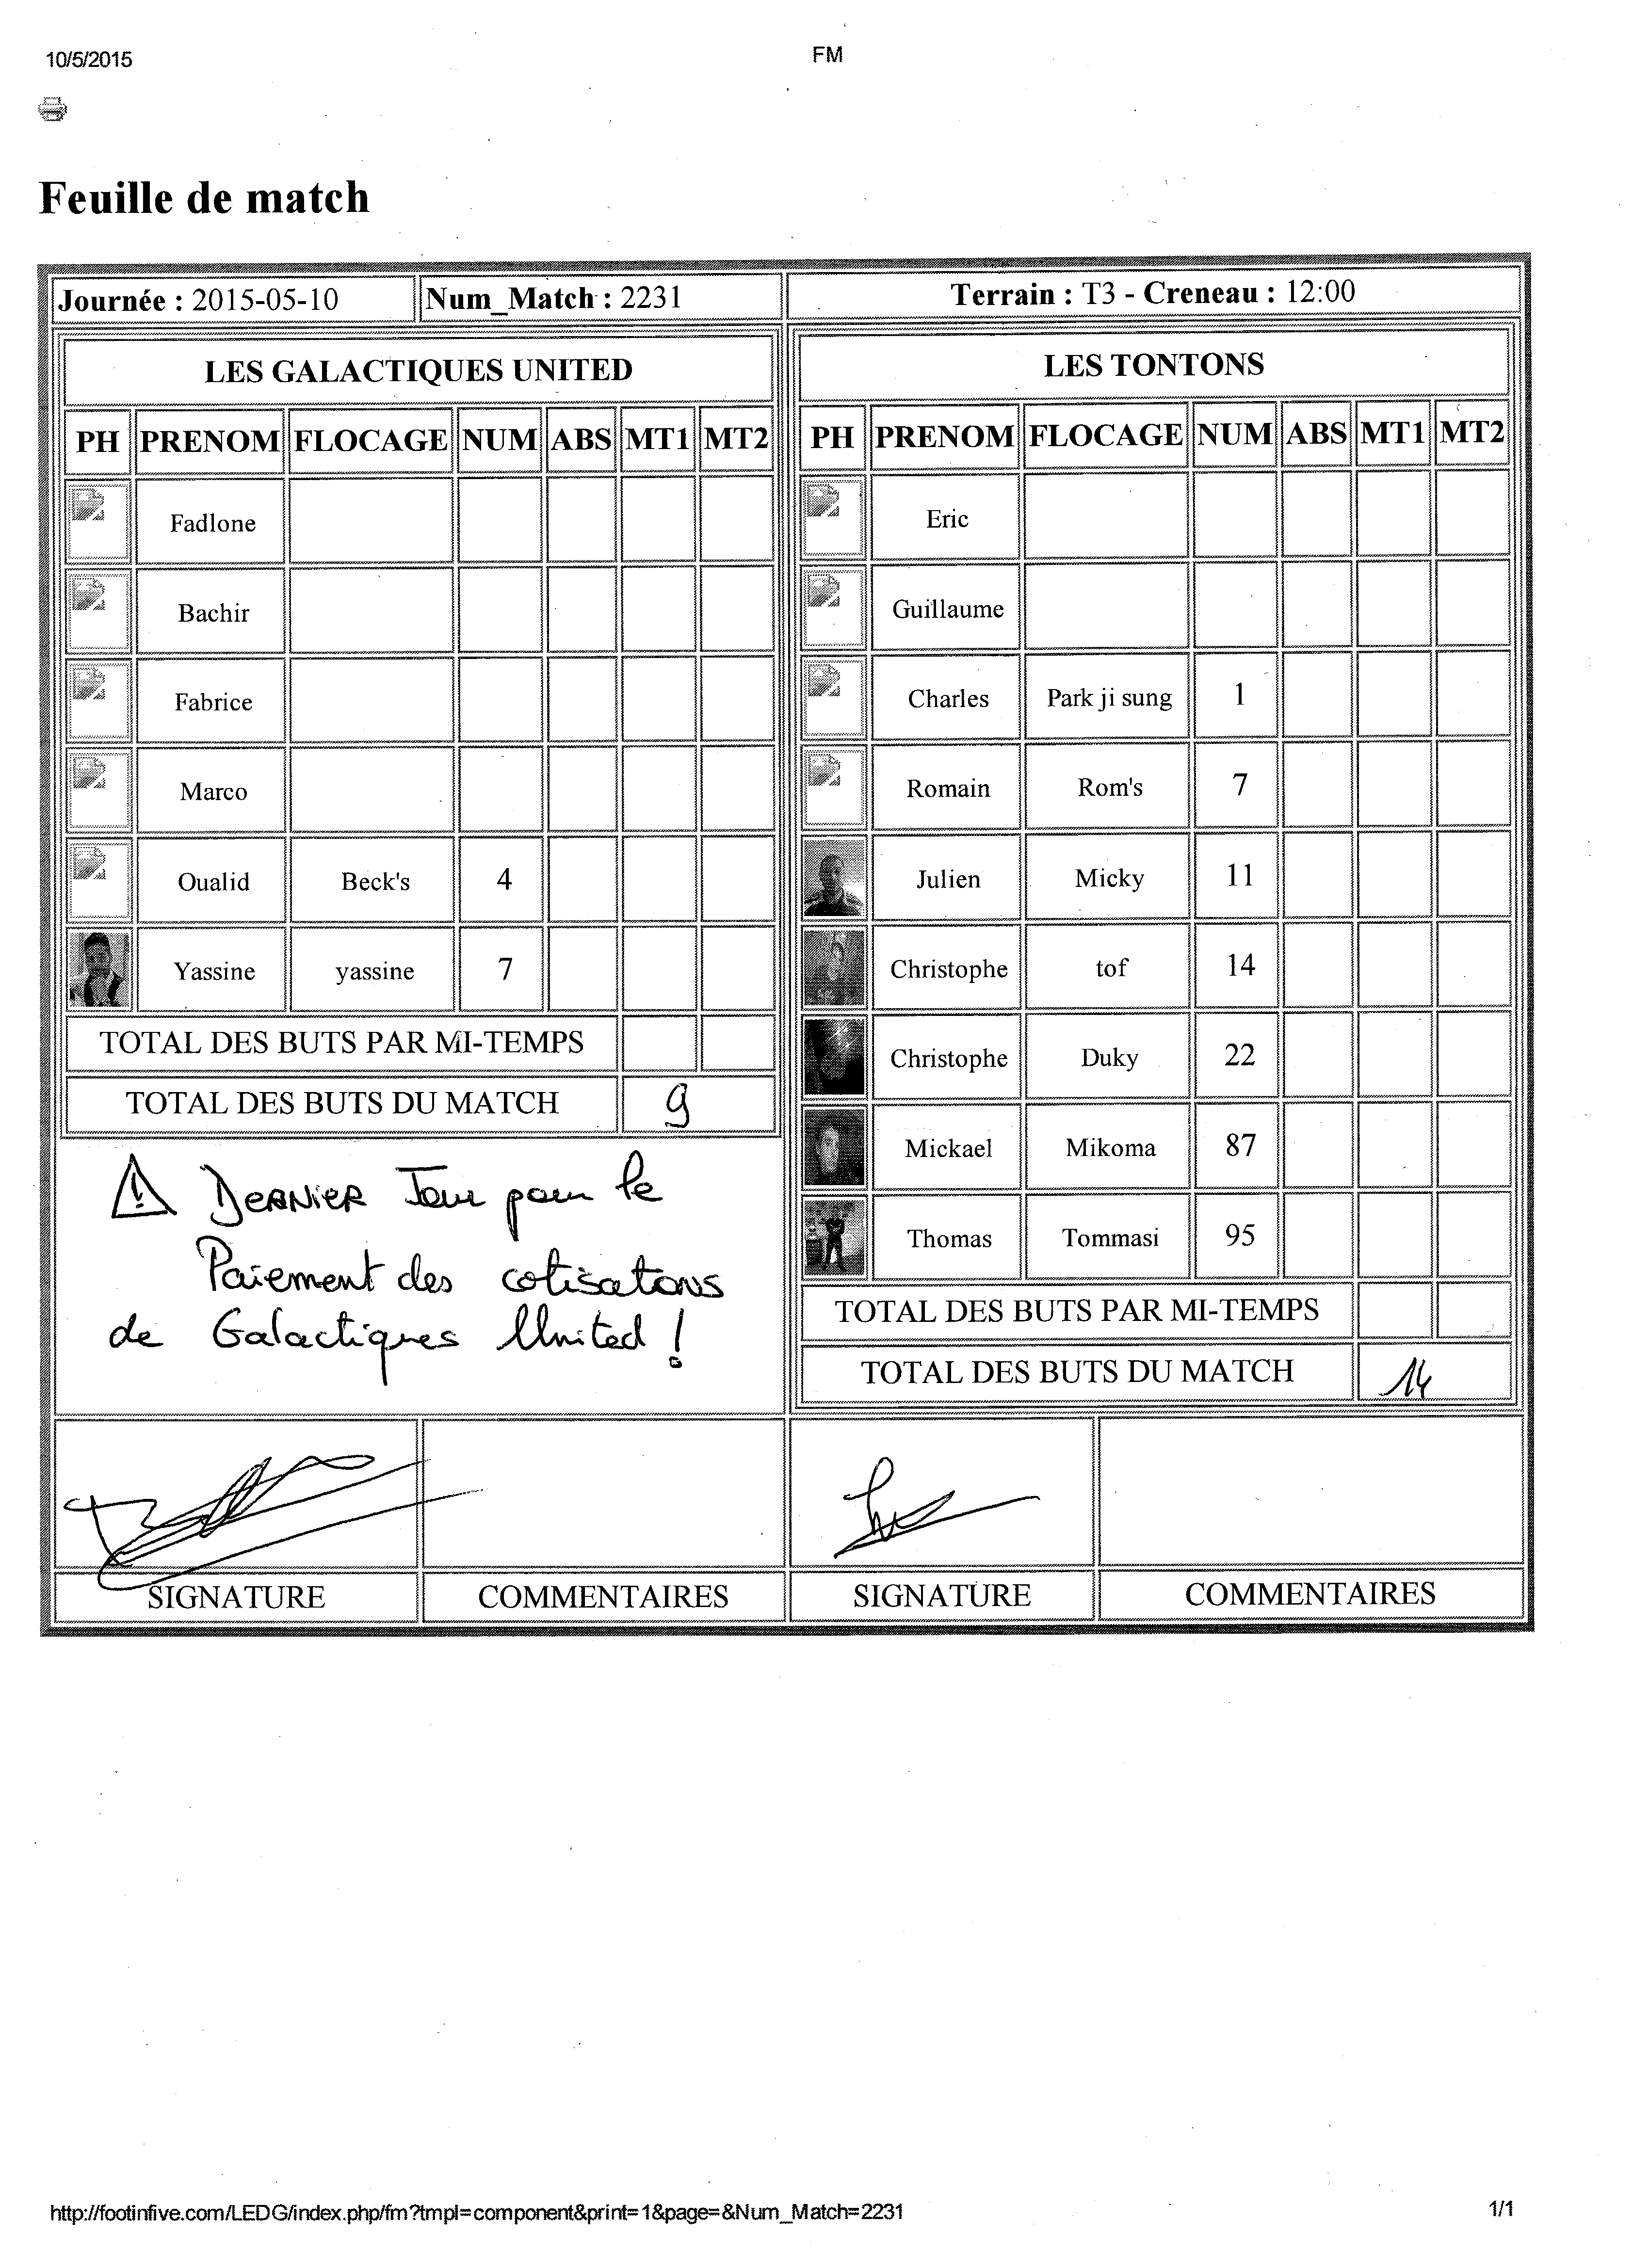 10/5/2015
FM
Feuille de match
Journée : 2015-05-10
Num_Match : 2231
Terrain : T3 - Creneau : 12:00
LES GALACTIQUES UNITED
PH PRENOM FLOCAGE NUM ABS MT1 MT2
Fadlone
Bachir
Fabrice
Marco
Oualid Beck's 4
Yassine yassine 7
TOTAL DES BUTS PAR MI-TEMPS
TOTAL DES BUTS DU MATCH 9
DERNIER Jour pour le
Paiement des cotisations
de Galactiques United !
LES TONTONS
PH PRENOM FLOCAGE NUM ABS MT1 MT2
Eric
Guillaume
Charles Park ji sung 1
Romain Rom's 7
Julien Micky 11
Christophe tof 14
Christophe Duky 22
Mickael Mikoma 87
Thomas Tommasi 95
TOTAL DES BUTS PAR MI-TEMPS
TOTAL DES BUTS DU MATCH 14
SIGNATURE COMMENTAIRES SIGNATURE COMMENTAIRES
http://footinfive.com/LEDG/index.php/fm?tmpl=component&print=1&page=&Num_Match=2231
1/1